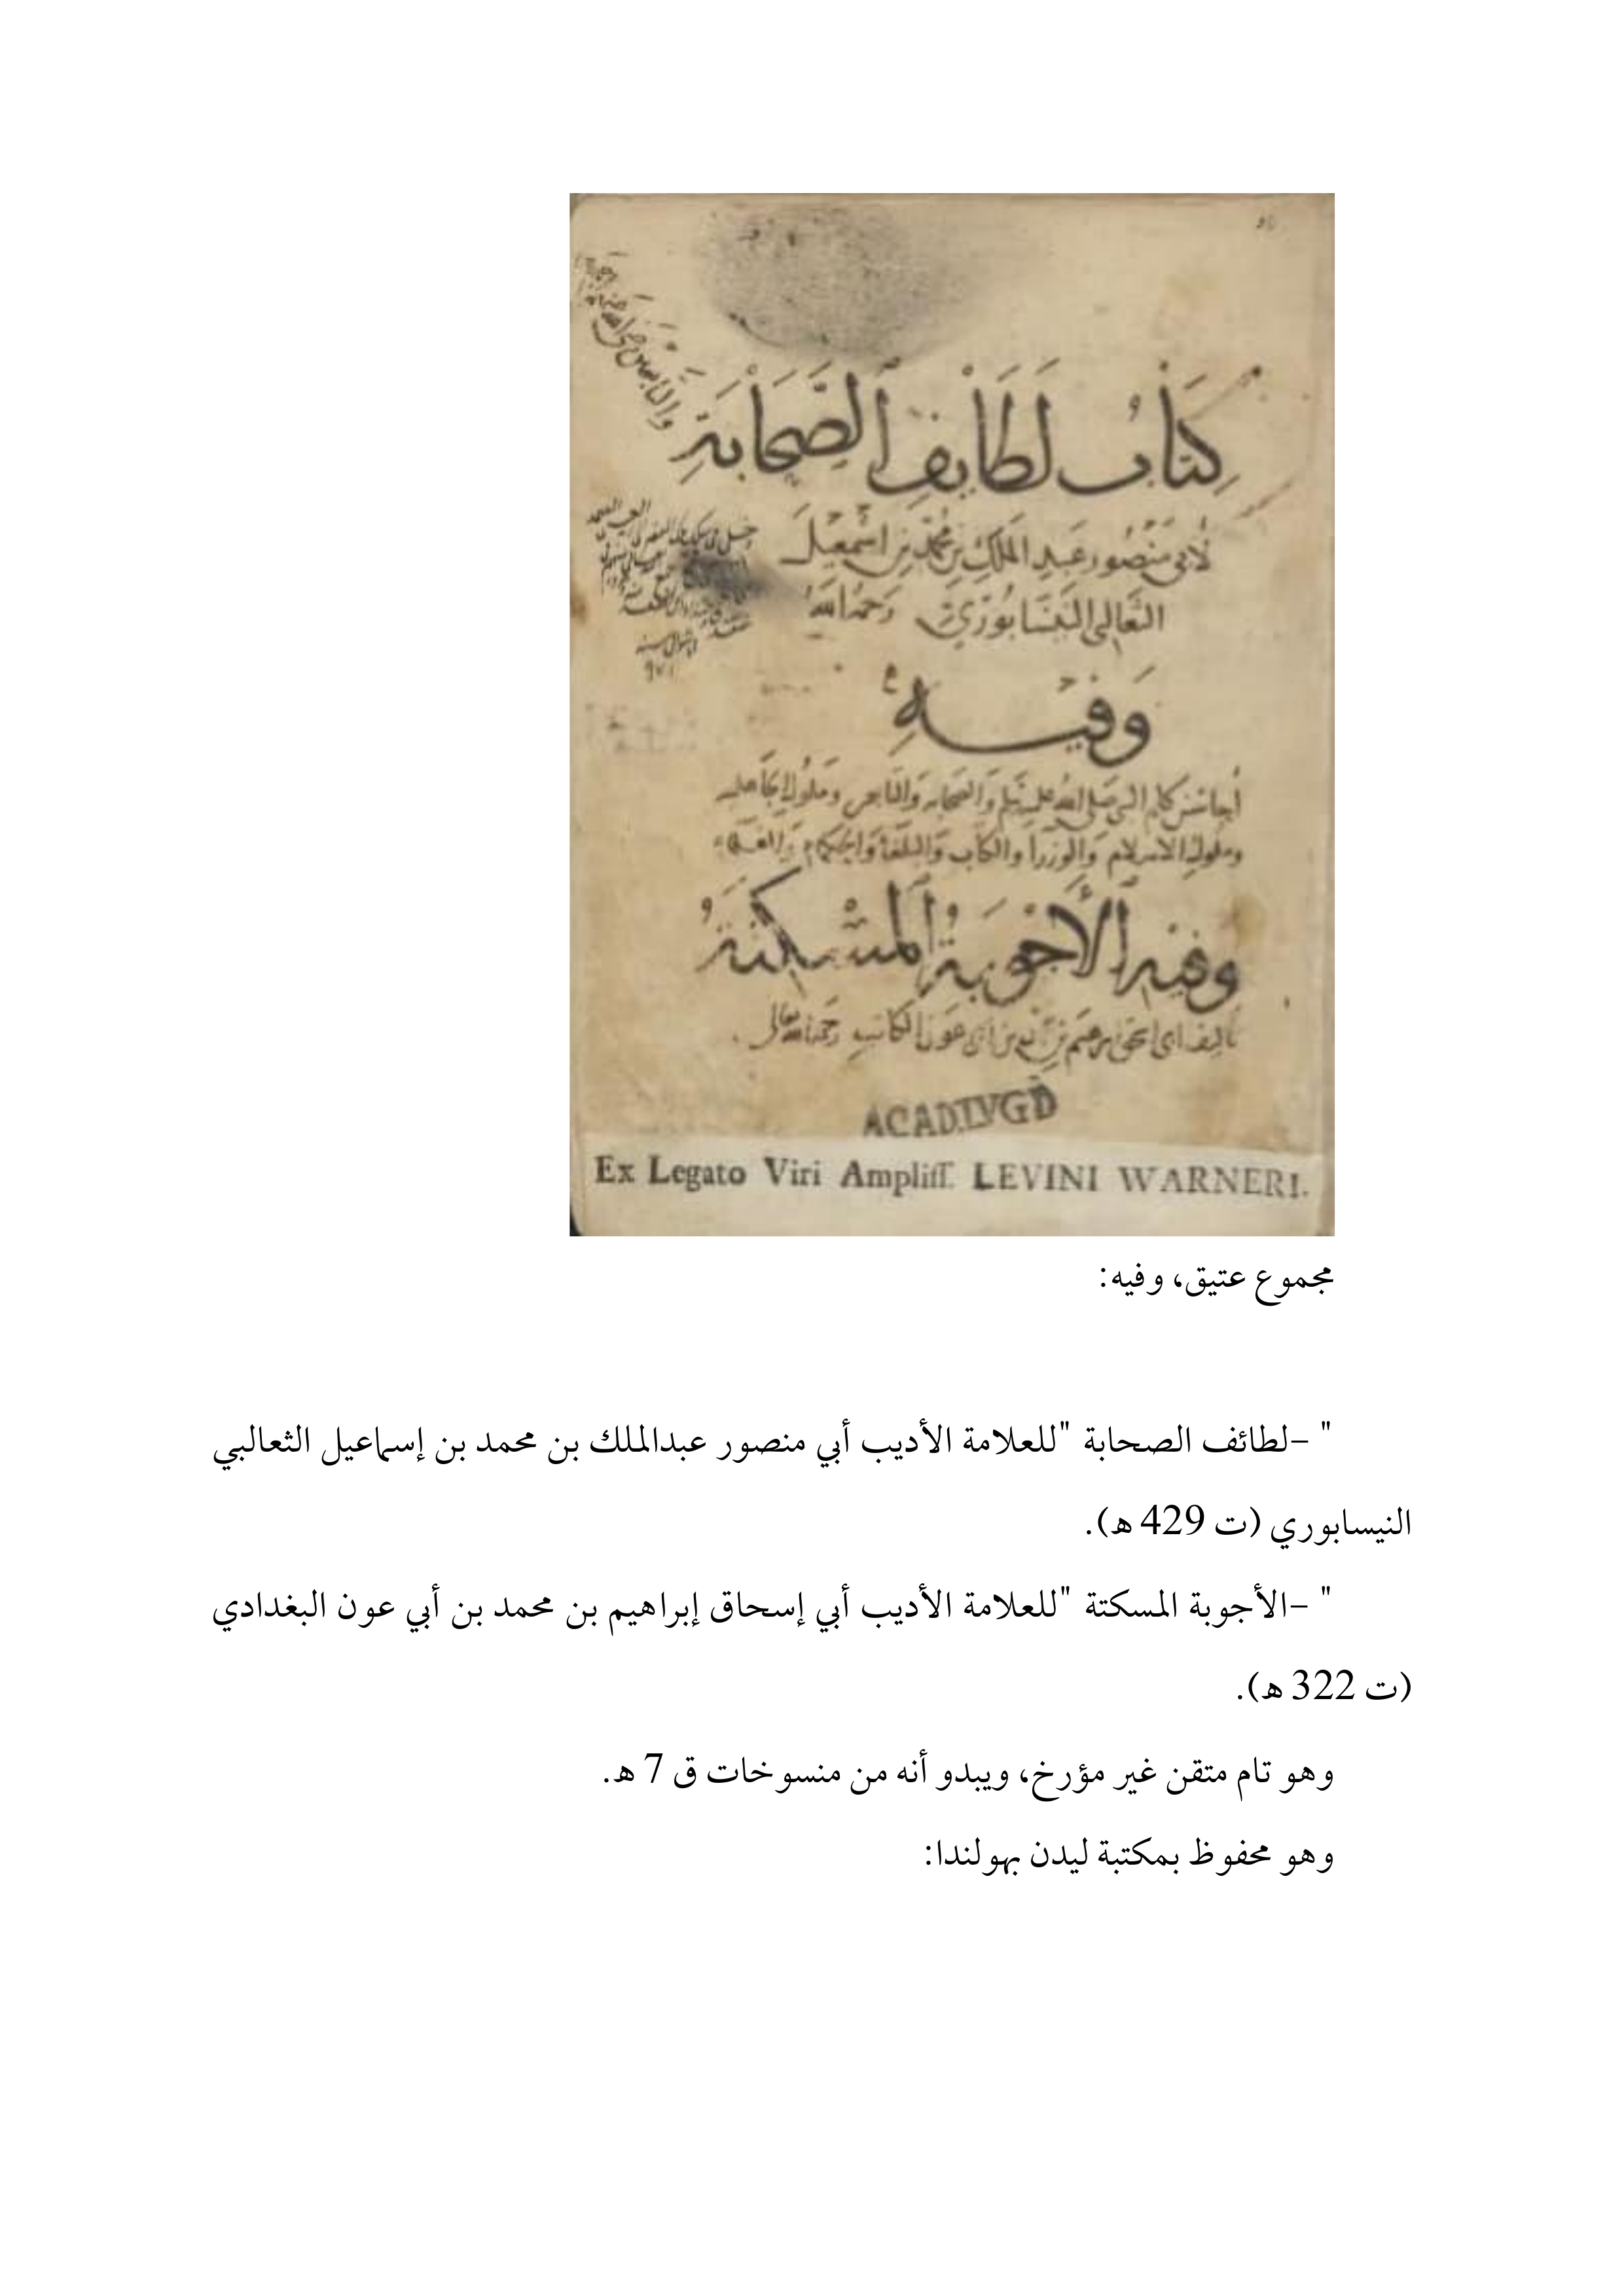 كتاب لطايف الصحابة
لأبي منصور عبد الملك بن محمد بن اسمعيل
الثعالبي النيسابوري رحمه الله
وفيه
أجناس كلام النبي صلى الله عليه وسلم والصحابه والتابعين وملوك الجاهليه
وملوك الاسلام والوزرا والكتاب والبلغا والحكماء والعلماء
وفيه الأجوبة المسكتة
تاليف ابي اسحق ابرهيم بن بن ابي عون الكاتب رحمه الله تعالى
ACAD.LVGD
Ex Legato Viri Ampliſſ. LEVINI WARNERI.
مجموع عتيق، وفيه:
" –لطائف الصحابة "للعلامة الأديب أبي منصور عبدالملك بن محمد بن إسماعيل الثعالبي
النيسابوري (ت 429 ه).
" –الأجوبة المسكتة "للعلامة الأديب أبي إسحاق إبراهيم بن محمد بن أبي عون البغدادي
(ت 322 ه).
وهو تام متقن غير مؤرخ، ويبدو أنه من منسوخات ق 7 ه.
وهو محفوظ بمكتبة ليدن بهولندا: